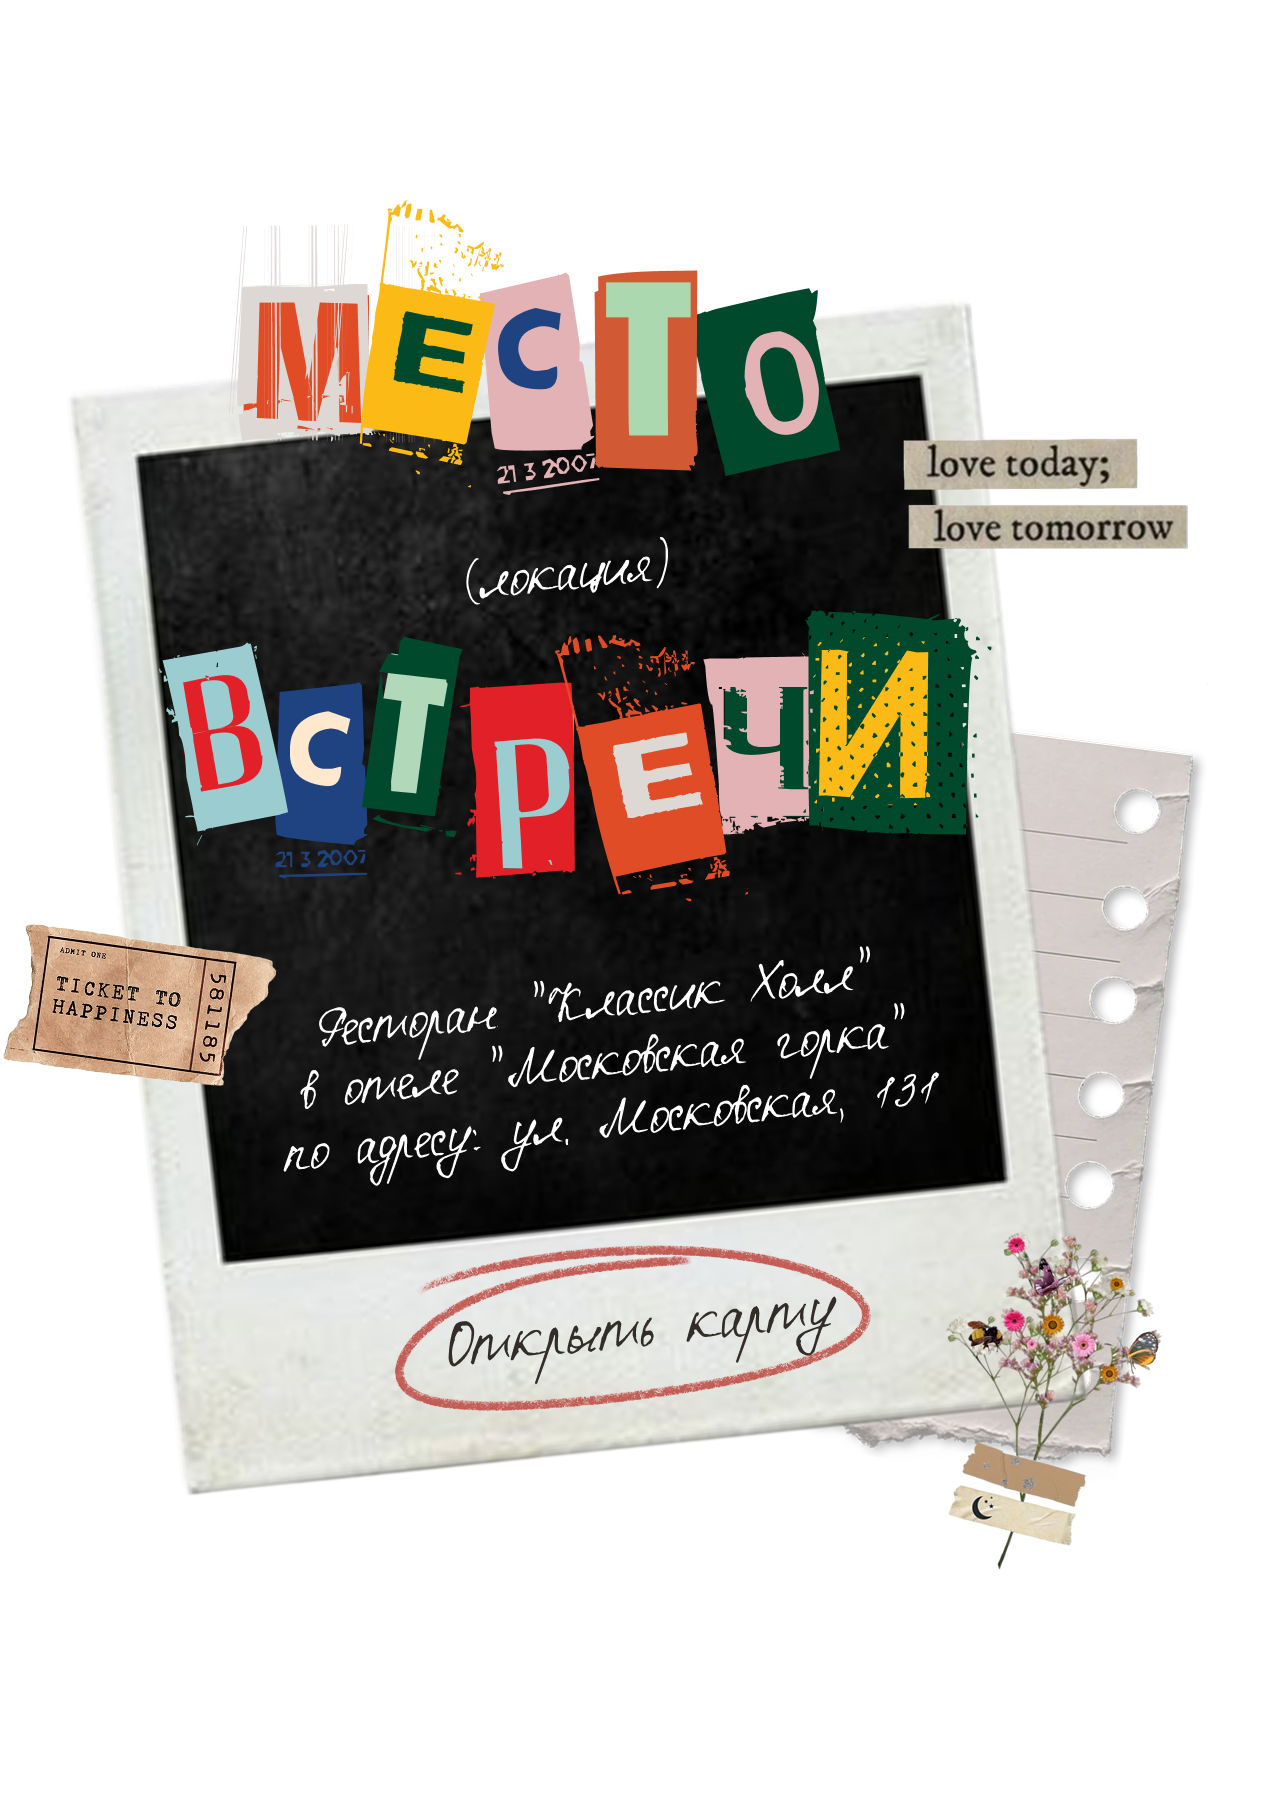 МЕСТО
21 3 2007
love today;
love tomorrow
(локация)
ВСТРЕЧИ
21 3 2007
ADMIT ONE
TICKET TO
HAPPINESS
581185
Ресторан "Классик Холл"
в отеле "Московская горка"
по адресу: ул. Московская, 131
Открыть карту